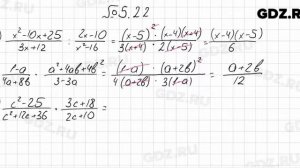 GDZ.RU
№ 5.22
) x²-10x+25 / 3x+12 : 2x-10 / x²-16 = (x-5)²·(x-4)(x+4) / 3(x+4)·2(x-5) = (x-4)(x-5) / 6
) 1-a / 4a+8b · a²+4ab+4b² / 3-3a = (1-a)·(a+2b)² / 4(a+2b)·3(1-a) = a+2b / 12
) c²-25 / c²+12c+36 · 3c+18 / 2c+10 =
GDZ.RU